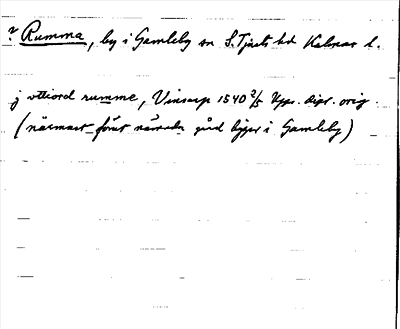 ? Rumma, by i Gamleby sn S. Tjusts hd Kalmar l.
j otteord rumme, Vinserp 1540 2/5 Upps. dipl. orig.
(närmast förut nämnda gård ligger i Gamleby)